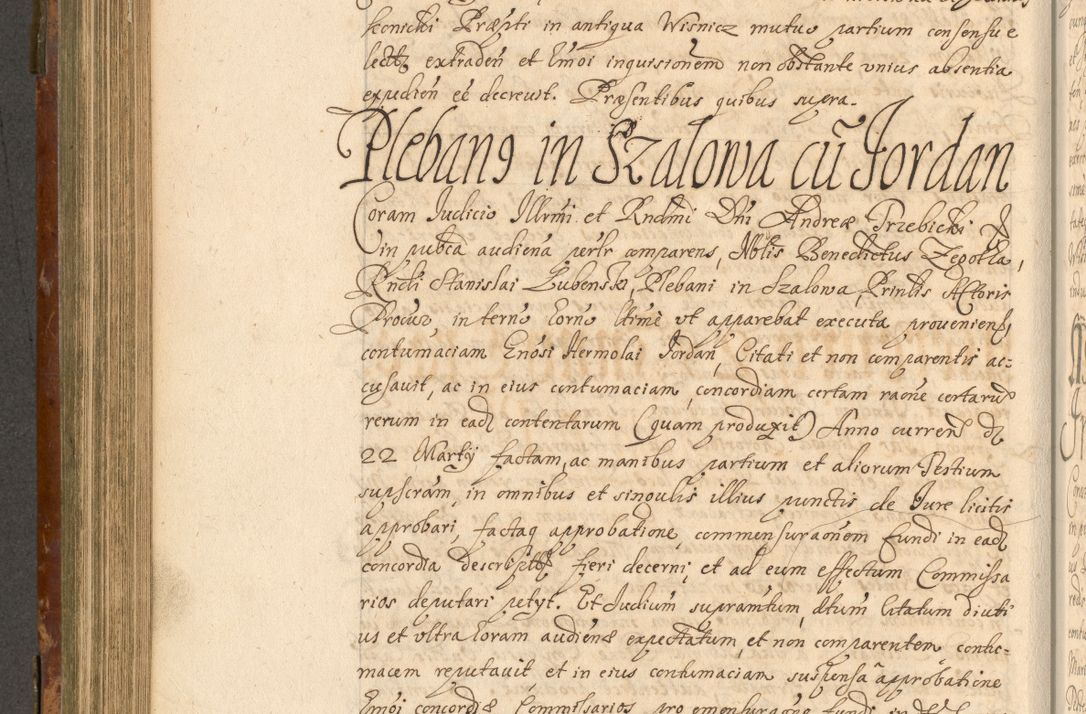 konicki Præpti in antiqua Wisnicz mutuo partium consensu e
lectt extraden et Emoi inquisionem non obstante unius absentia
expedien eē decrevit. Præsentibus quibus supra.
Pleban9 in Szalowa cū Jordan
Coram Judicio Illrmi et Rndmi Dni Andreæ Trzebicki
in pubca audiena perlr comparens, Nblis Benedictus Zegotka,
Rndi Stanislai Lubenski, Plebani in Szalowa, Prinlis Actoris
Procur, in termo horno ltime ut apparebat executa proveniens,
contumaciam Gnosi Hermolai Jordan, Citati et non comparentis ac=
cusavit, ac in eius contumaciam, concordiam certam raone certaru
rerum in ead contentarum (quam produxit) Anno curren d
22 Martij factam, ac manibus partium et aliorum Testium
supscram, in omnibus et singulis illius punctis de Jure licitis
approbari, factaq approbatione, commensuraonem fundi in ead
concordia descriptt fieri decerni, et ad eum effectum Commissa
rios deputari petyt. Et Judium supramtum, dtum Citatum diuti
us et ultra horam audienæ expectatum, et non comparentem contu=
macem reputavit et in eius contumaciam suspensa approbatione
Emoi concordiæ Commissarios pro emensuraone fundi in